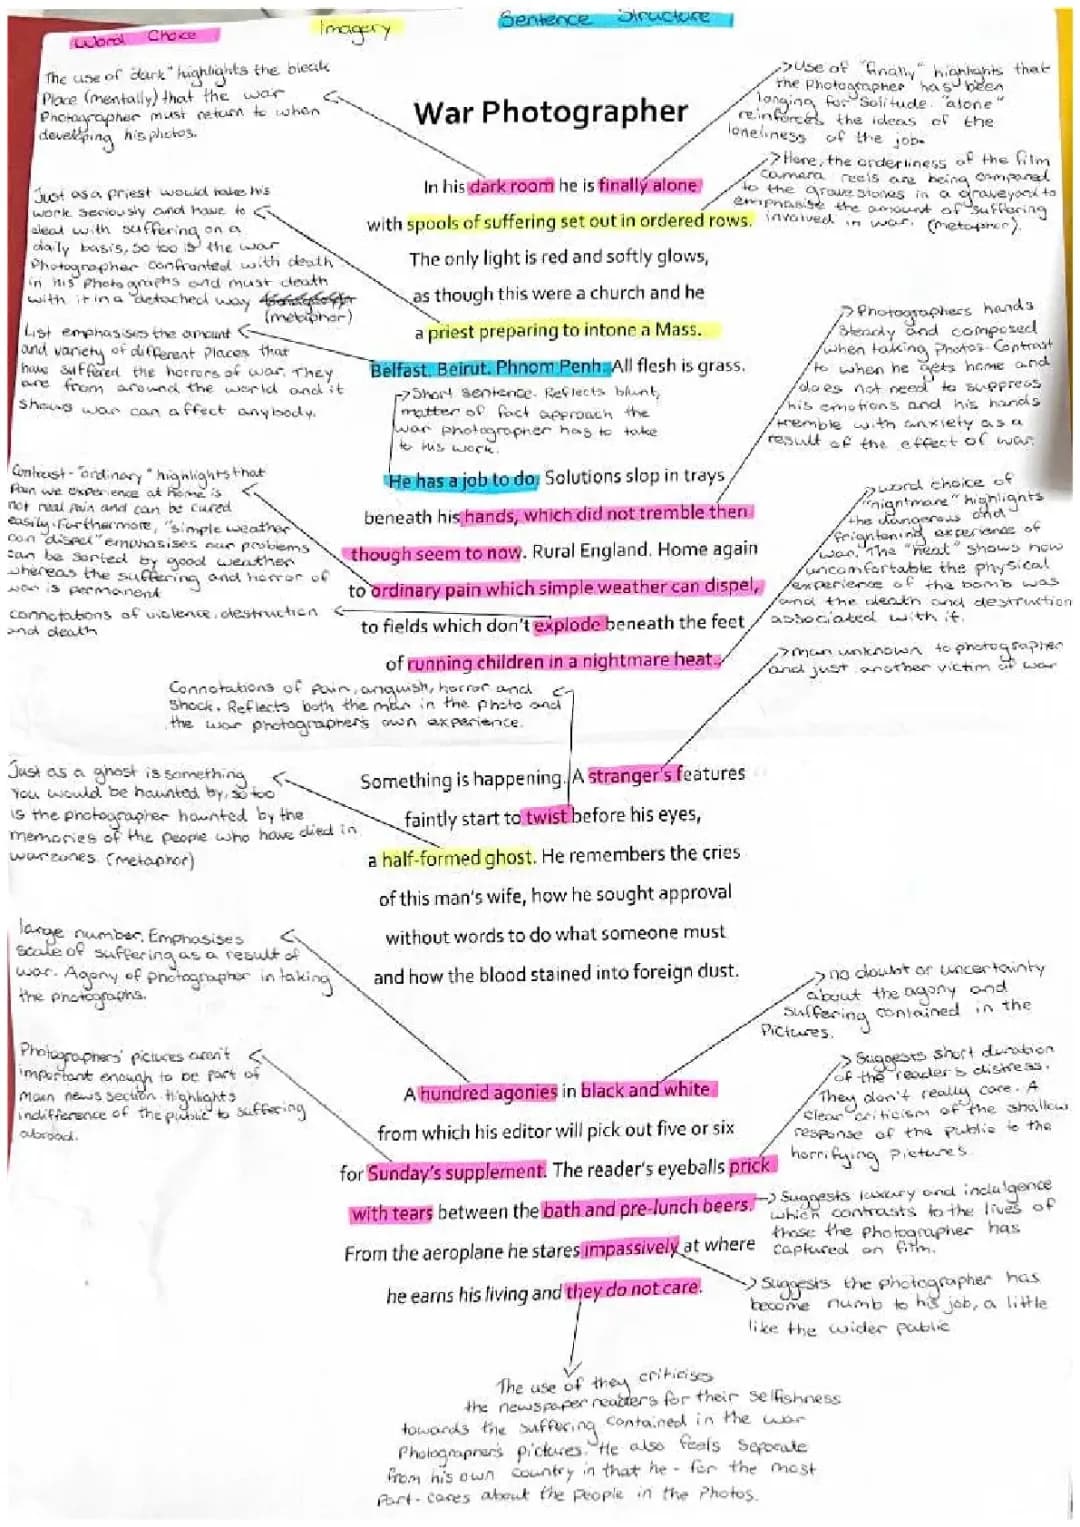 Word Choice
Imagery
Sentence Structure
The use of "dark" highlights the bleak
Place (mentally) that the war
Photographer must return to when
developing his photos.
War Photographer
Use of "finally" highlights that
the Photographer has been
longing for solitude. "alone"
reinforces the ideas of the
loneliness of the job.
In his dark room he is finally alone
with spools of suffering set out in ordered rows.
The only light is red and softly glows,
as though this were a church and he
a priest preparing to intone a Mass.
Belfast. Beirut. Phnom Penh. All flesh is grass.
Here, the orderliness of the film
camera reels are being compared
to the gravestones in a graveyard to
emphasise the amount of suffering
involved in war. (metaphor).
Just as a priest would takes his
work seriously and have to
deal with suffering on a
daily basis, so too is the war
Photographer confronted with death
in his photographs and must death
with it in a detached way
(metaphor)
List emphasises the amount
and variety of different places that
have suffered the horrors of war. They
are from around the world and it
shows war can affect anybody.
Short sentence. Reflects blunt,
matter of fact approach the
war photographer has to take
to his work.
Photographers hands
steady and composed
when taking photos. Contrast
to when he gets home and
does not need to suppress
his emotions and his hands
tremble with anxiety as a
result of the effect of war.
He has a job to do. Solutions slop in trays
beneath his hands, which did not tremble then
though seem to now. Rural England. Home again
to ordinary pain which simple weather can dispel,
to fields which don't explode beneath the feet
of running children in a nightmare heat.
Contrast - "ordinary" highlights that
Pain we experience at home is
not real pain and can be cured
easily. Furthermore, "simple weather
can dispel" emphasises our problems
can be sorted by good weather
whereas the suffering and horror of
war is permanent
connotations of violence, destruction
and death
word choice of
"nightmare" highlights
the dangerous and
frightening experience of
war. The "heat" shows how
uncomfortable the physical
experience of the bomb was
and the death and destruction
associated with it.
man unknown to photographer
and just another victim of war
Connotations of pain, anguish, horror and
shock. Reflects both the man in the photo and
the war photographer's own experience.
Something is happening. A stranger's features
faintly start to twist before his eyes,
a half-formed ghost. He remembers the cries
of this man's wife, how he sought approval
without words to do what someone must
and how the blood stained into foreign dust.
Just as a ghost is something
you would be haunted by, so too
is the photographer haunted by the
memories of the people who have died in
warzones. (metaphor)
large number. Emphasises
scale of suffering as a result of
war. Agony of photographer in taking
the photographs.
no doubt or uncertainty
about the agony and
suffering contained in the
Pictures.
A hundred agonies in black and white
from which his editor will pick out five or six
for Sunday's supplement. The reader's eyeballs prick
with tears between the bath and pre-lunch beers.
From the aeroplane he stares impassively at where
he earns his living and they do not care.
Photographers' pictures aren't
important enough to be part of
main news section. Highlights
indifference of the public to suffering
abroad.
Suggests short duration
of the reader's distress.
They don't really care. A
clear criticism of the shallow
response of the public to the
horrifying pictures.
Suggests luxury and indulgence
which contrasts to the lives of
those the photographer has
captured on film.
Suggests the photographer has
become numb to his job, a little
like the wider public
The use of they criticises
the newspaper readers for their selfishness
towards the suffering contained in the war
Photographer's pictures. He also feels separate
from his own country in that he - for the most
part - cares about the people in the photos.